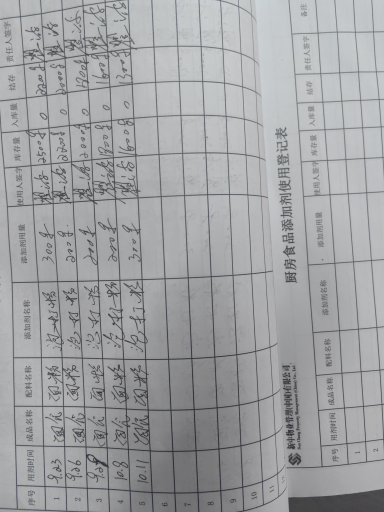 序号 用剂时间 成品名称 配料名称 添加剂名称 添加剂用量 使用人签字 库存量 入库量 结存 责任人签字
1 9.23 面食 面粉 泡打粉 300g 2500g 0 2200g
2 9.26 面食 面粉 泡打粉 200g 2200g 0 2000g
3 面食 面粉 泡打粉 200g 2000g 0 1800g
4 10.8 面食 面粉 泡打粉 200g 1800g 0 1600g
5 10.11 面食 面粉 泡打粉 300g 1600g 0 1300g
6
7
8
9
10
11
厨房食品添加剂使用登记表
新中物业管理(中国)有限公司
序号 用剂时间 成品名称 配料名称 添加剂名称 添加剂用量 使用人签字 库存量 入库量 结存 责任人签字 备注
1
2